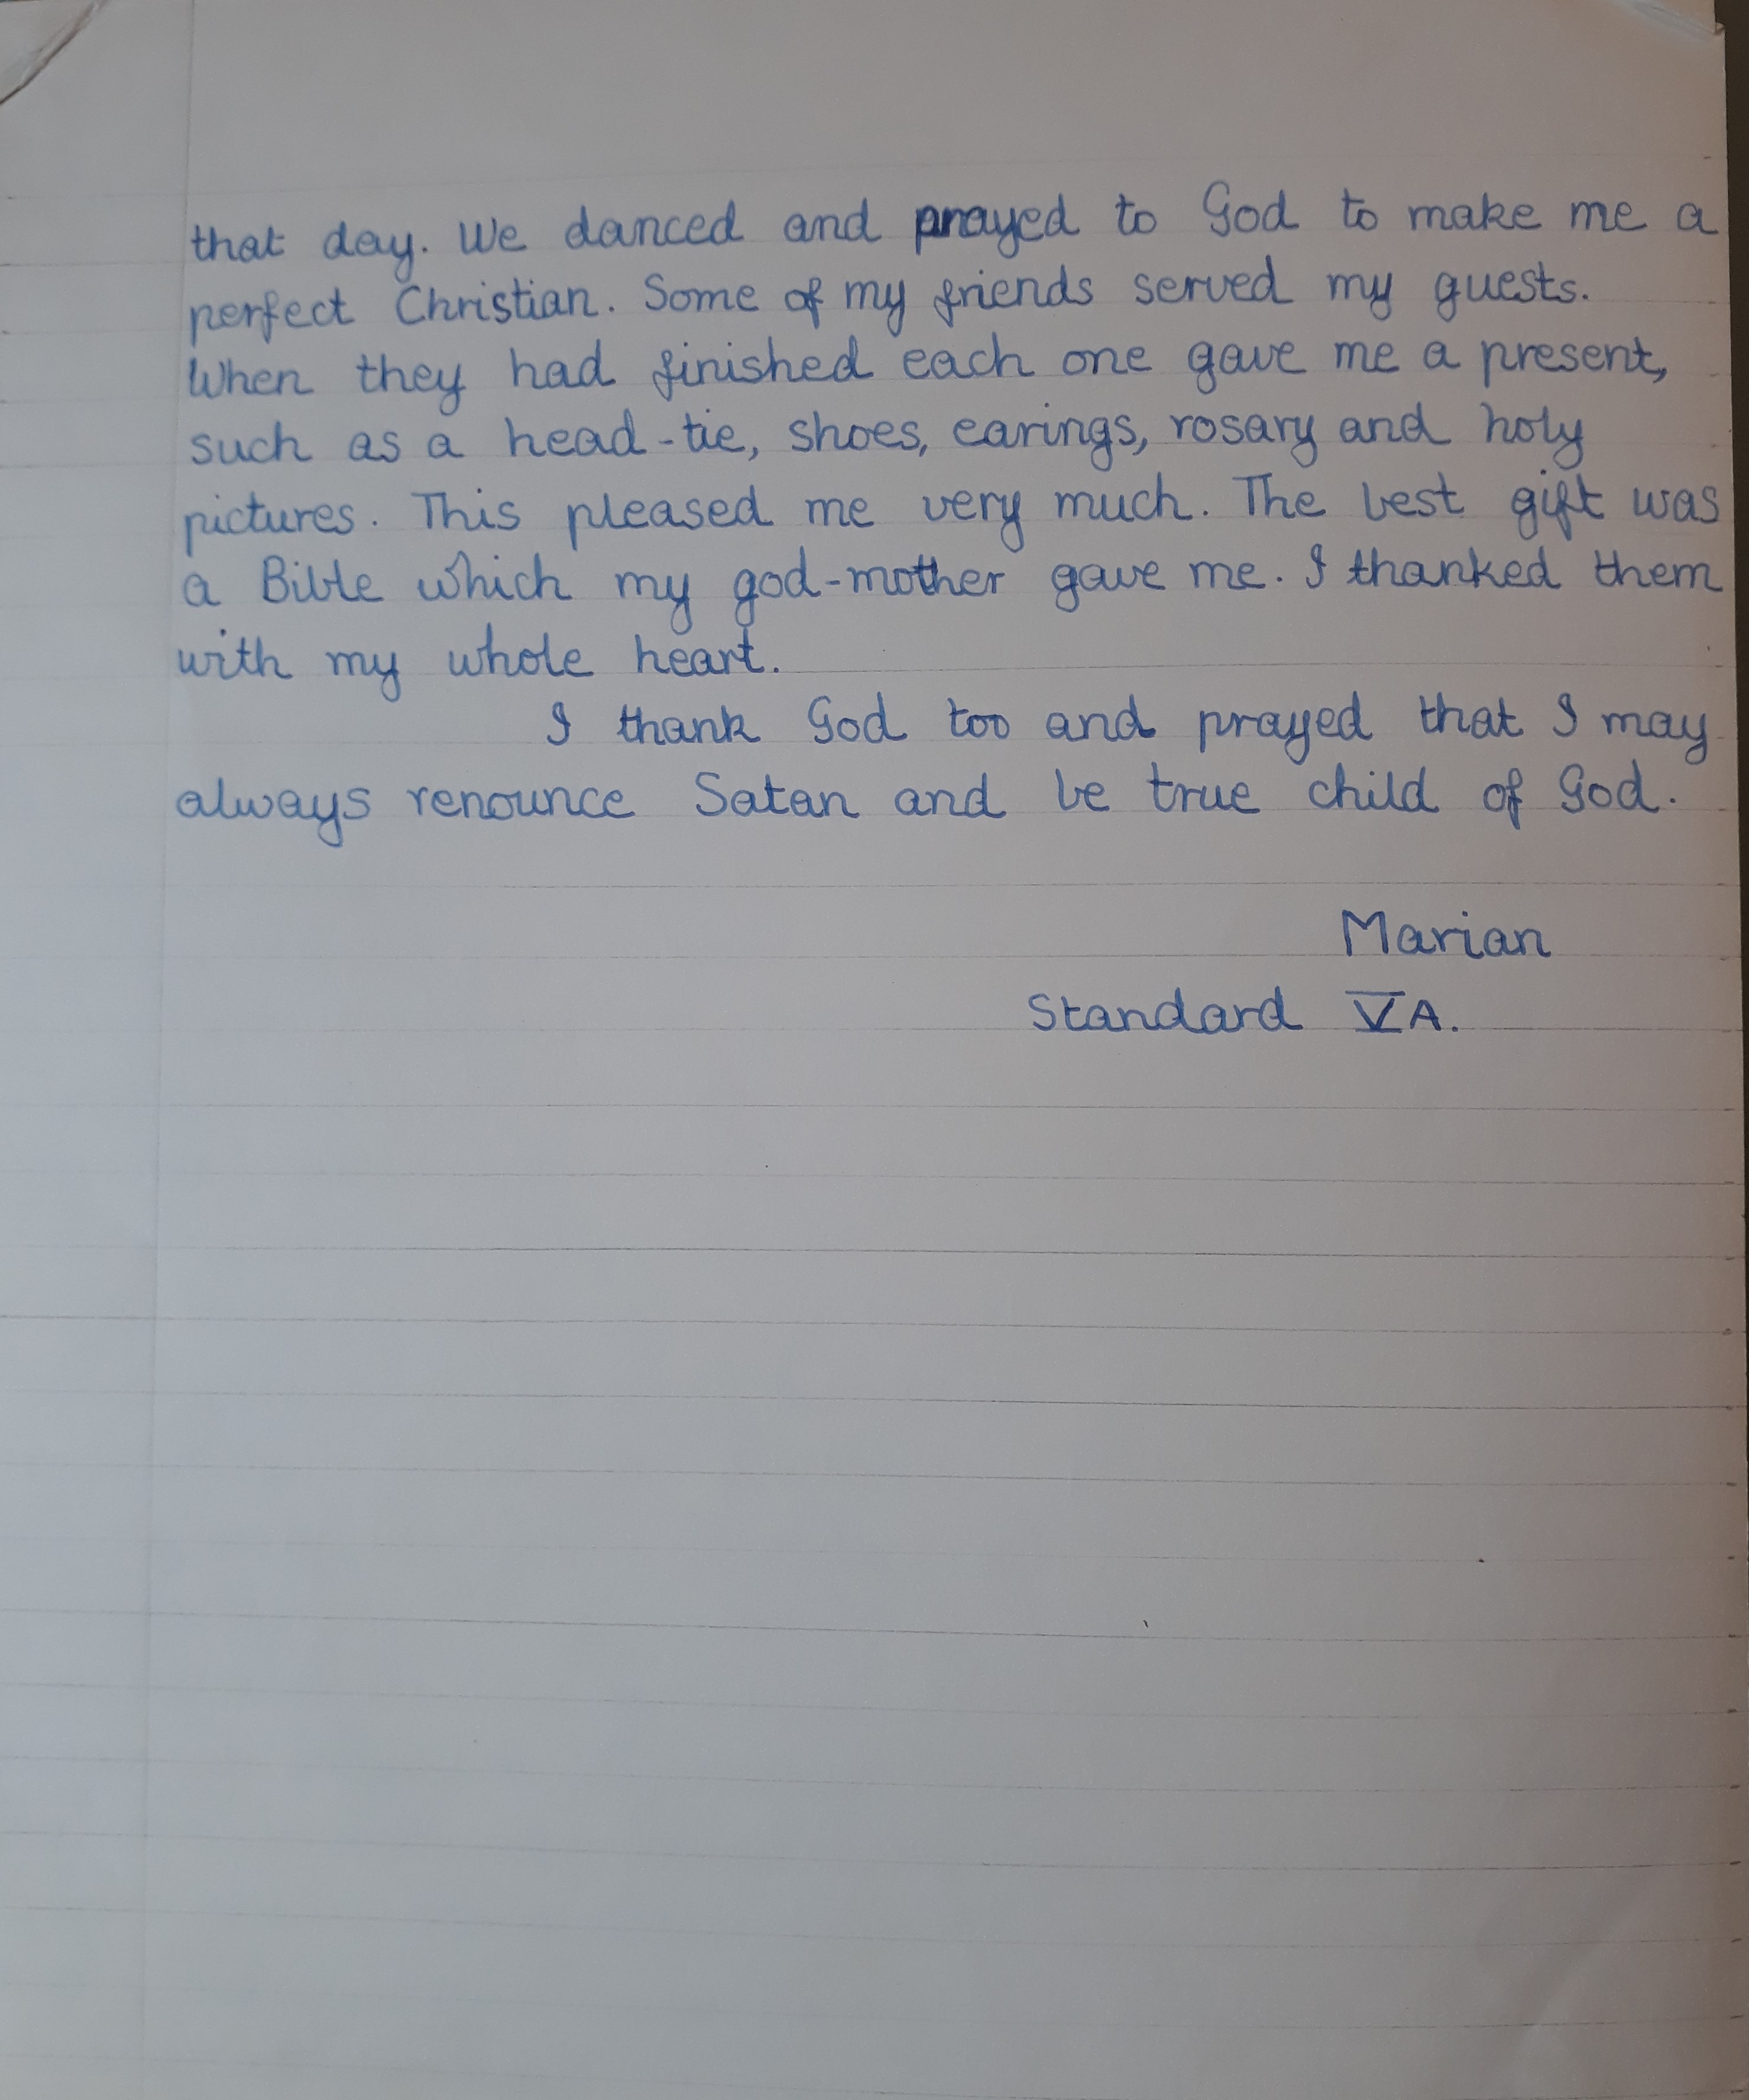 that day. We danced and prayed to God to make me a
perfect Christian. Some of my friends served my guests.
When they had finished each one gave me a present,
such as a head-tie, shoes, earings, rosary and holy
pictures. This pleased me very much. The best gift was
a Bible which my god-mother gave me. I thanked them
with my whole heart.
I thank God too and prayed that I may
always renounce Satan and be true child of God.
Marian
Standard VA.